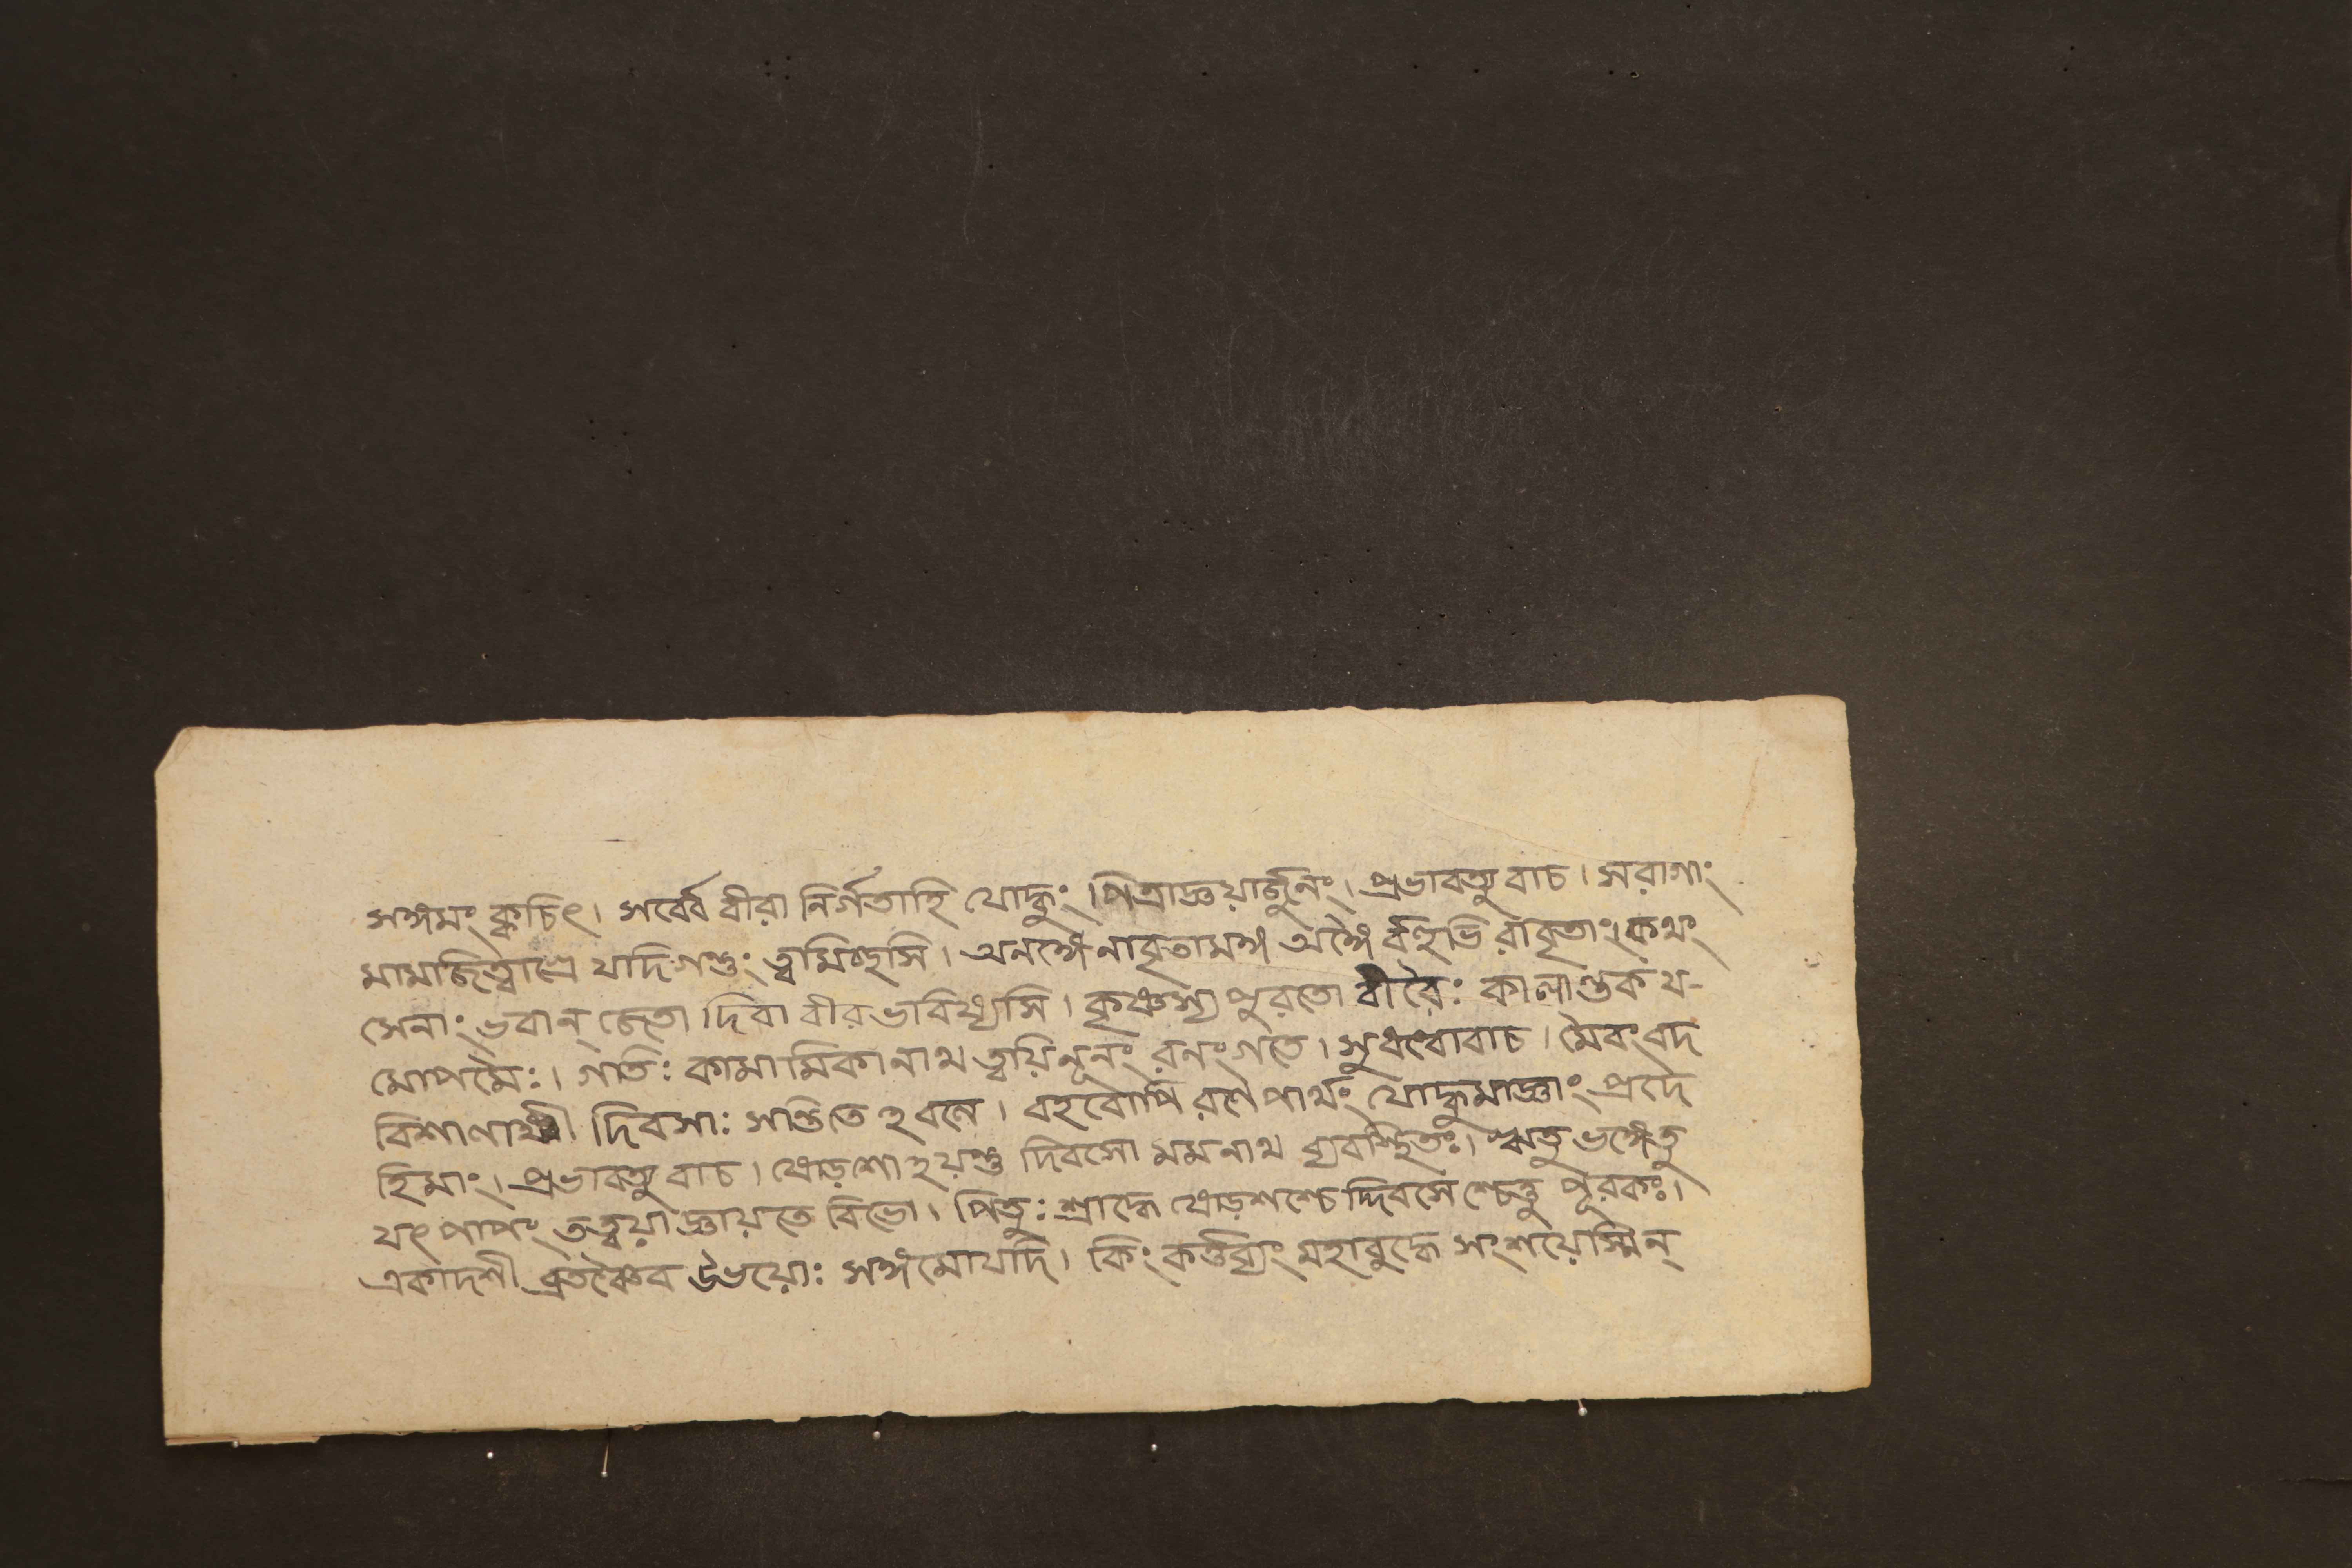 সঙ্গমং ক্বচিৎ। সর্ব্বে বীরা নির্গতাহি যোদ্ধুং পিত্রাজ্ঞয়ার্জ্জুনং। প্রভাবত্যুবাচ। সরাগাং
মামাজিত্বাগ্রে যাদি গন্তুং ত্বমিচ্ছসি। অনঙ্গেনাবৃতামঙ্গ অঙ্গৈর্বহুভিরাবৃতাং। কথং
সেনাং ভবান্ জেতা দিবা বীর ভাবিষ্যসি। কৃষ্ণস্য পুরতো বীরৈঃ কালান্তক য-
মোপমৈঃ। গতিঃ কামামিকা নাথ ত্বয়ি নূনং রনং গতে। সুধন্বোবাচ। মৈবং বদ
বিশালাক্ষী দিবসাঃ সন্তিতে ঽবলে। বহবোপি রণে পার্থং যোদ্ধুমাজ্ঞাং প্রদে
হিমাং। প্রভাবত্যুবাচ। ষোড়শো ঽয়ন্তু দিবসো মমনাথ ব্যবস্থিতঃ। ঋতু ভঙ্গেতু
যৎ পাপং তত্ত্বয়া জ্ঞায়তে বিভো। পিতুঃ শ্রাদ্ধে ষোড়শশ্চে দ্দিবসে শ্চেত্তু পূরকঃ।
একাদশী ব্রতঞ্চৈব উভয়োঃ সঙ্গমো যাদি। কিং কর্ত্তব্যং মহাবুদ্ধে সংশয়েস্মিন্